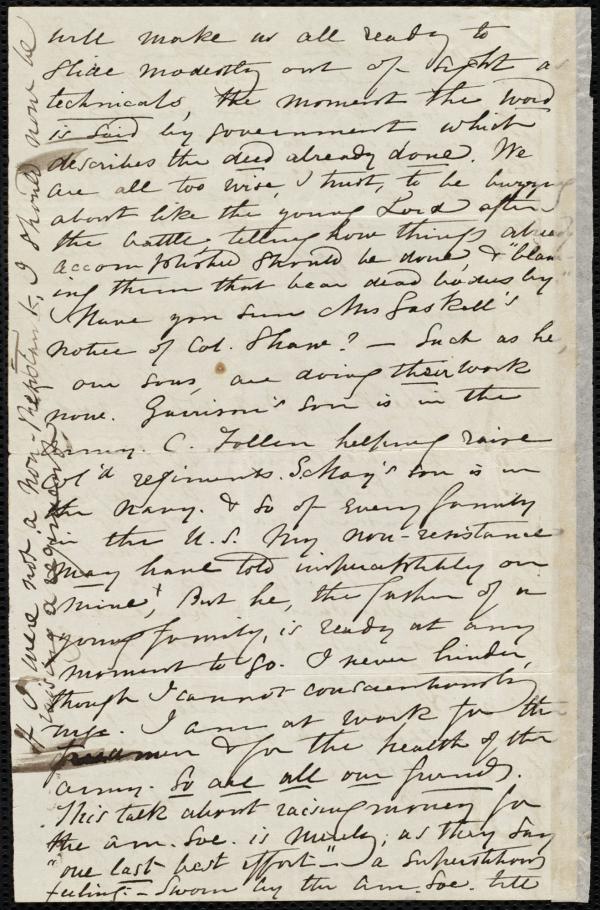 will make us all ready to
slide modestly out of sight as
technicals, the moment the word
is said by government which
describes the deed already done. We
are all too wise, I trust, to be buzzing
about like the young Lord after
the battle, telling how things already
accomplished should be done, & "blam-
ing them that bear dead bodies by"
Have you seen Mrs Gaskell's
notice of Col. Shaw? — Such as he,
our sons, are doing their work
now. Garrison's son is in the
army. C. Follen helping raise
col'd regiments. S. May's son is in
the Navy. & so of every family
in the U.S. My non-resistance
may have told imperceptibly on
mine; But he, the father of a
young family, is ready at any
moment to go. I never hinder,
though I cannot conscientiously
urge. I am at work for the
freedmen & for the health of the
army. So are all our friends.
This talk about raising money for
the Am. Soc. is merely, as they say
"one last best effort" — a superstitious
feeling — sworn by the Am. Soc. till
If I were not a Non-Resistant, I should now be
raising a regiment